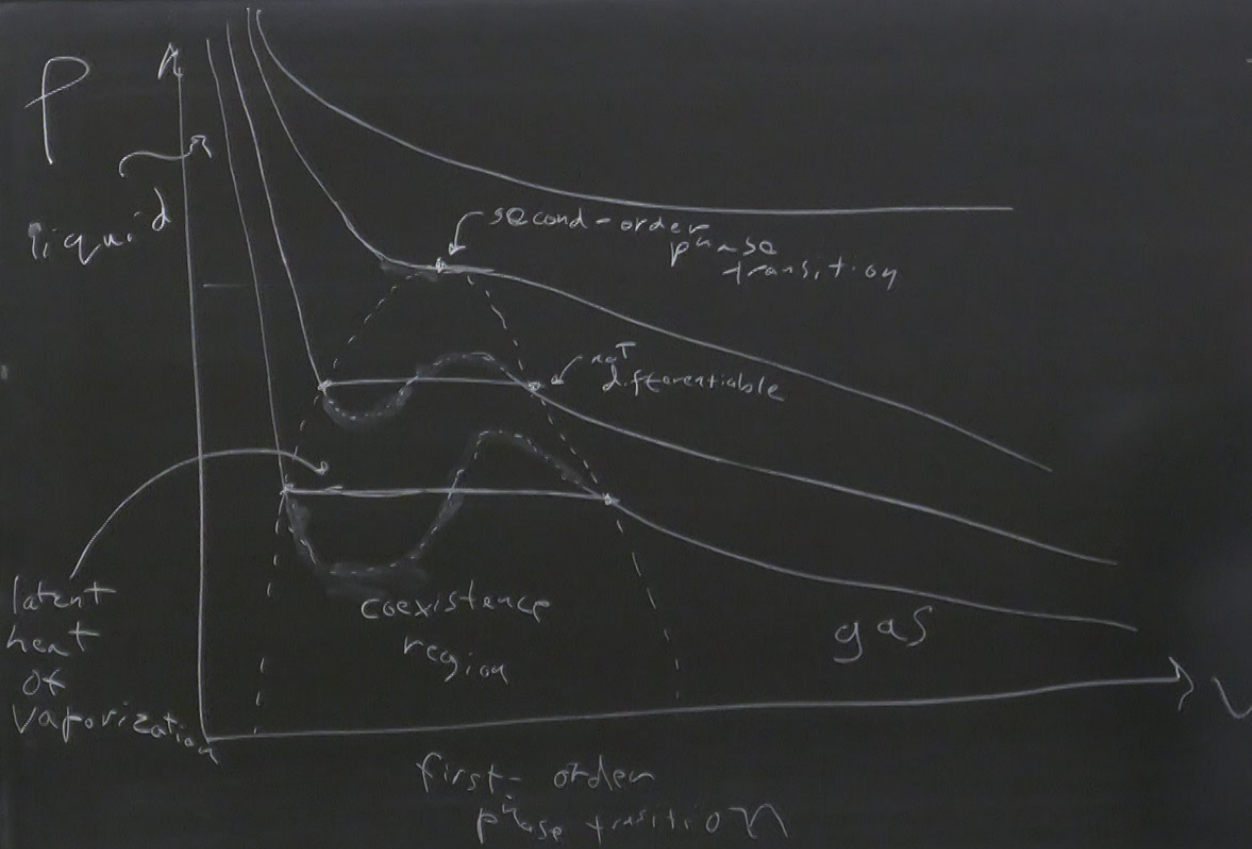 P
liquid
second-order
phase
transition
not
differentiable
latent
heat
of
vaporization
coexistence
region
gas
V
first-order
phase trasition